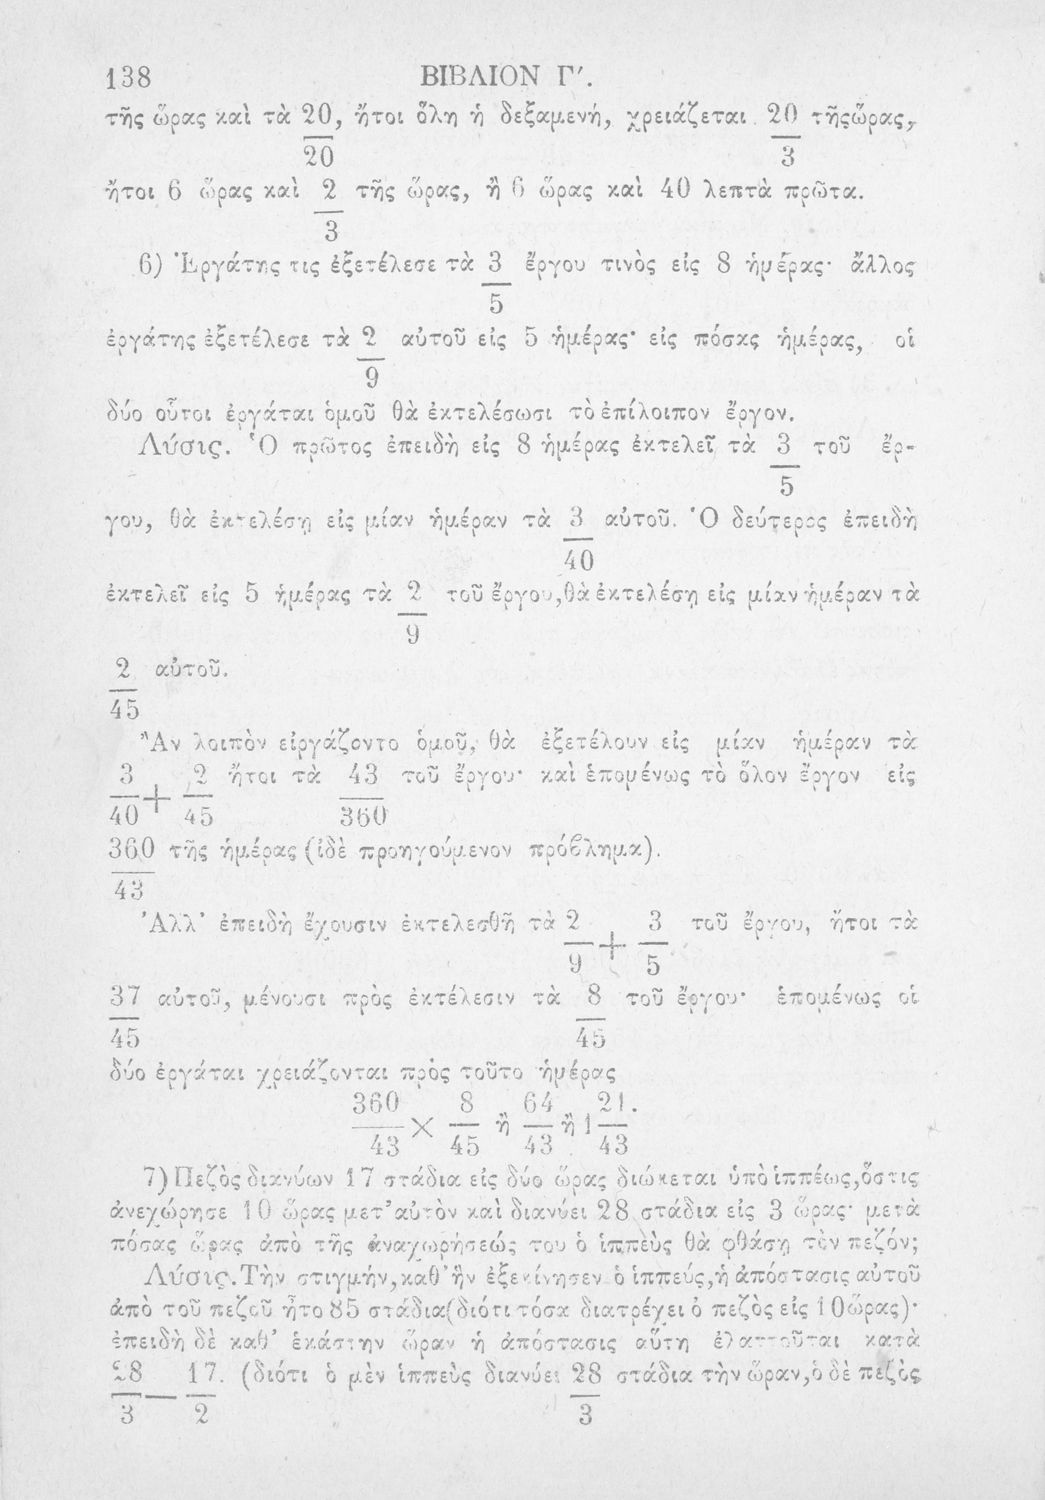 138 ΒΙΒΛΙΟΝ Γ΄.
τῆς ὥρας καὶ τὰ 20/20, ἤτοι ὅλη ἡ δεξαμενή, χρειάζεται 20/3 τῆς ὥρας,
ἤτοι 6 ὥρας καὶ 2/3 τῆς ὥρας, ἢ 6 ὥρας καὶ 40 λεπτὰ πρῶτα.
6) Ἐργάτης τις ἐξετέλεσε τὰ 3/5 ἔργου τινὸς εἰς 8 ἡμέρας· ἄλλος
ἐργάτης ἐξετέλεσε τὰ 2/9 αὐτοῦ εἰς 5 ἡμέρας· εἰς πόσας ἡμέρας, οἱ
δύο οὗτοι ἐργάται ὁμοῦ θὰ ἐκτελέσωσι τὸ ἐπίλοιπον ἔργον.
Λύσις. Ὁ πρῶτος ἐπειδὴ εἰς 8 ἡμέρας ἐκτελεῖ τὰ 3/5 τοῦ ἔρ-
γου, θὰ ἐκτελέσῃ εἰς μίαν ἡμέραν τὰ 3/40 αὐτοῦ. Ὁ δεύτερος ἐπειδὴ
ἐκτελεῖ εἰς 5 ἡμέρας τὰ 2/9 τοῦ ἔργου, θὰ ἐκτελέσῃ εἰς μίαν ἡμέραν τὰ
2/45 αὐτοῦ.
Ἂν λοιπὸν εἰργάζοντο ὁμοῦ, θὰ ἐξετέλουν εἰς μίαν ἡμέραν τὰ
3/40 + 2/45 ἤτοι τὰ 43/360 τοῦ ἔργου· καὶ ἑπομένως τὸ ὅλον ἔργον εἰς
360/43 τῆς ἡμέρας (ἰδὲ προηγούμενον πρόβλημα).
Ἀλλ' ἐπειδὴ ἔχουσιν ἐκτελεσθῆ τὰ 2/9 + 3/5 τοῦ ἔργου, ἤτοι τὰ
37/45 αὐτοῦ, μένουσι πρὸς ἐκτέλεσιν τὰ 8/45 τοῦ ἔργου· ἑπομένως οἱ
δύο ἐργάται χρειάζονται πρὸς τοῦτο ἡμέρας
360/43 × 8/45 ἢ 64/43 ἢ 1 21/43.
7) Πεζὸς διανύων 17 στάδια εἰς δύο ὥρας διώκεται ὑπὸ ἱππέως, ὅστις
ἀνεχώρησε 10 ὥρας μετ' αὐτὸν καὶ διανύει 28 στάδια εἰς 3 ὥρας· μετὰ
πόσας ὥρας ἀπὸ τῆς ἀναχωρήσεώς του ὁ ἱππεὺς θὰ φθάσῃ τὸν πεζόν;
Λύσις. Τὴν στιγμήν, καθ' ἣν ἐξεκίνησεν ὁ ἱππεύς, ἡ ἀπόστασις αὐτοῦ
ἀπὸ τοῦ πεζοῦ ἦτο 85 στάδια (διότι τόσα διατρέχει ὁ πεζὸς εἰς 10 ὥρας)·
ἐπειδὴ δὲ καθ' ἑκάστην ὥραν ἡ ἀπόστασις αὕτη ἐλαττοῦται κατὰ
28/3 — 17/2. (διότι ὁ μὲν ἱππεὺς διανύει 28/3 στάδια τὴν ὥραν, ὁ δὲ πεζὸς